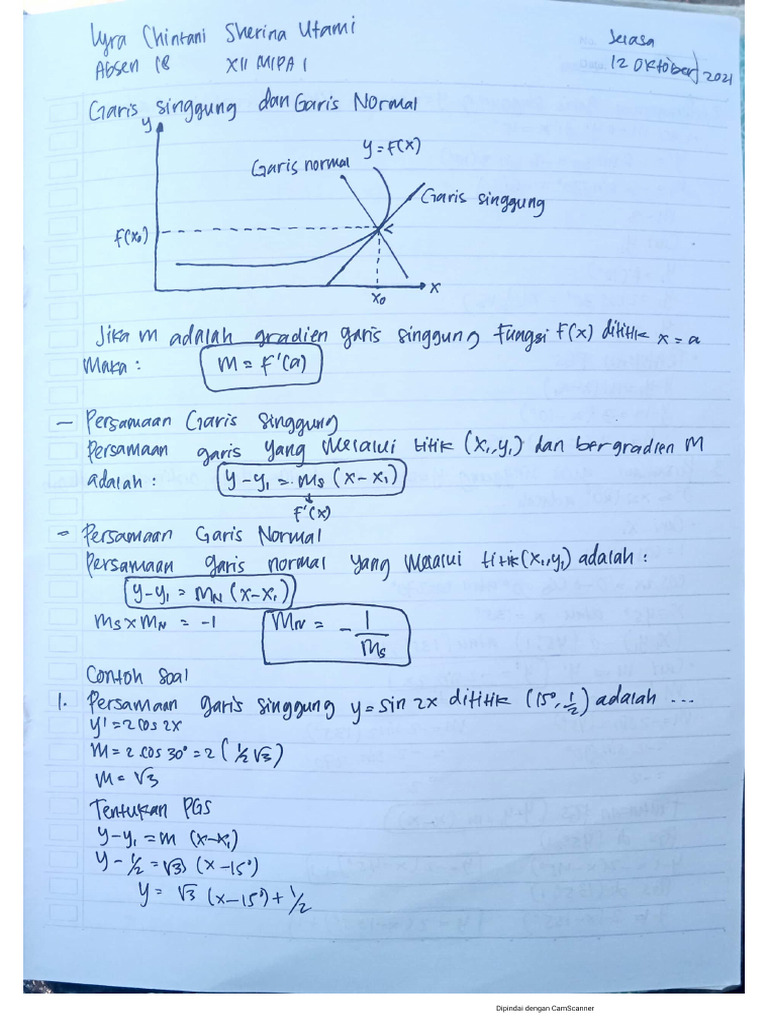 Lyra Chintani Sherina Utami
Absen 18 XII MIPA 1
Selasa
12 Oktober 2021
Garis singgung dan Garis Normal
y
Garis normal
y = F(x)
Garis singgung
F(x₀)
x₀
x
Jika m adalah gradien garis singgung fungsi F(x) dititik x = a
Maka : m = F'(a)
- Persamaan Garis Singgung
Persamaan garis yang melalui titik (x₁, y₁) dan bergradien M
adalah : y - y₁ = ms (x - x₁)
F'(x)
- Persamaan Garis Normal
Persamaan garis normal yang melalui titik (x₁, y₁) adalah :
y - y₁ = mN (x - x₁)
ms x mN = -1 mN = - 1/ms
Contoh soal
1. Persamaan garis singgung y = sin 2x dititik (15°, 1/2) adalah ...
y' = 2 cos 2x
m = 2 cos 30° = 2 (1/2 √3)
m = √3
Tentukan PGS
y - y₁ = m (x - x₁)
y - 1/2 = √3 (x - 15°)
y = √3 (x - 15°) + 1/2
Dipindai dengan CamScanner